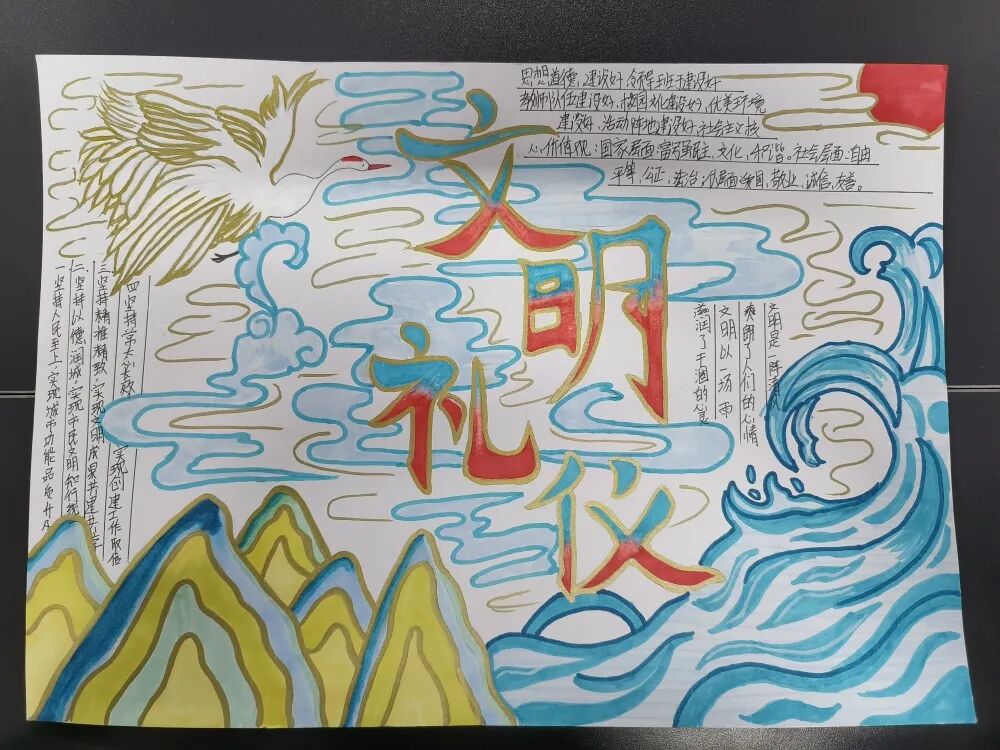 文明礼仪
思想道德,建设好,领导班子建设好
教师队伍建设好、校园文化建设好、优美环境
建设好、活动阵地建设好,社会主义核
心价值观:国家层面:富强民主、文化、和谐。社会层面:自由
平等、公正、法治、层面爱国,敬业,诚信、友善。
文明是一阵清风
爽朗了人们的心情
文明以一场雨
滋润了干涸的心灵
四坚持学大长效 实现创建工作取信
三坚持精准精致,实现文明成果共建共享
二、坚持以德润城,实现市民文明知行
一坚持人民至上,实现城市功能品质升